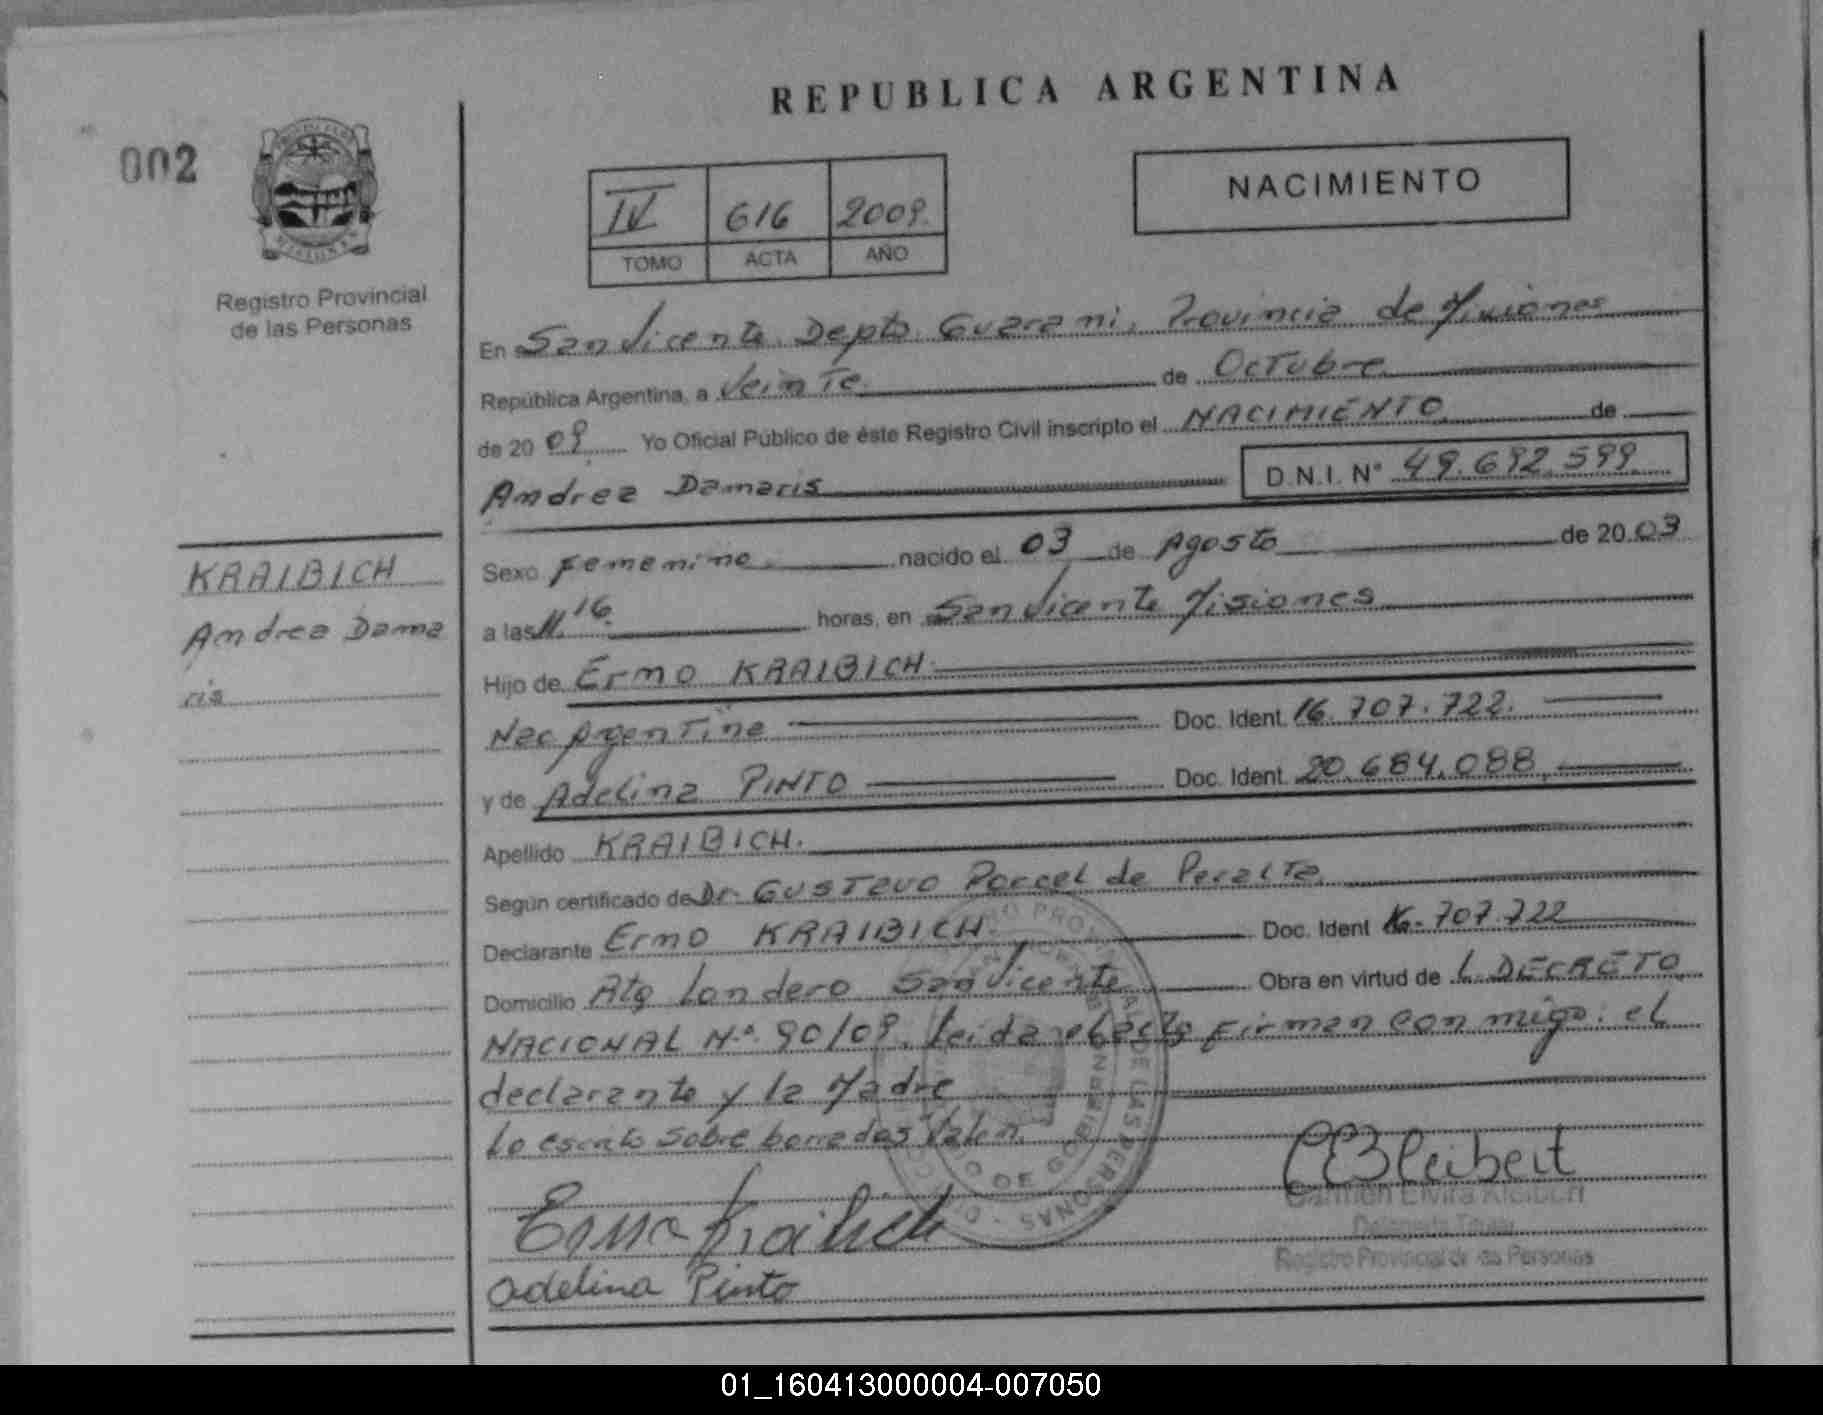 REPUBLICA ARGENTINA
002
NACIMIENTO
IV 616 2009.
TOMO ACTA AÑO
Registro Provincial
de las Personas
En San Vicente Depto. Guarani, Provincia de Misiones
República Argentina, a Veinte de Octubre
de 20 09 Yo Oficial Público de éste Registro Civil inscripto el NACIMIENTO de
Andrea Damaris D.N.I. N° 49.692.599
KRAIBICH
Andrea Dama
ris
Sexo Femenino nacido el 03 de Agosto de 20 03
a las 11.16. horas, en San Vicente Misiones
Hijo de Ermo KRAIBICH
Nac Argentina Doc. Ident. 16.707.722.
y de Adelina PINTO Doc. Ident. 20.684.088
Apellido KRAIBICH.
Según certificado de Dr. Gustavo Porcel de Peralta
Declarante Ermo KRAIBICH. Doc. Ident 16.707.722
Domicilio Alg Londero San Vicente Obra en virtud de L DECRETO
NACIONAL N.° 90/09. leida el acta firman con migo: el
declarante y la Madre
Lo escrito sobre borrados Valen.
Ermo Kraibich
Adelina Pinto
CEKleibert
Carmen Elvira Kleibert
Delegada Titular
Registro Provincial de las Personas
01_160413000004-007050